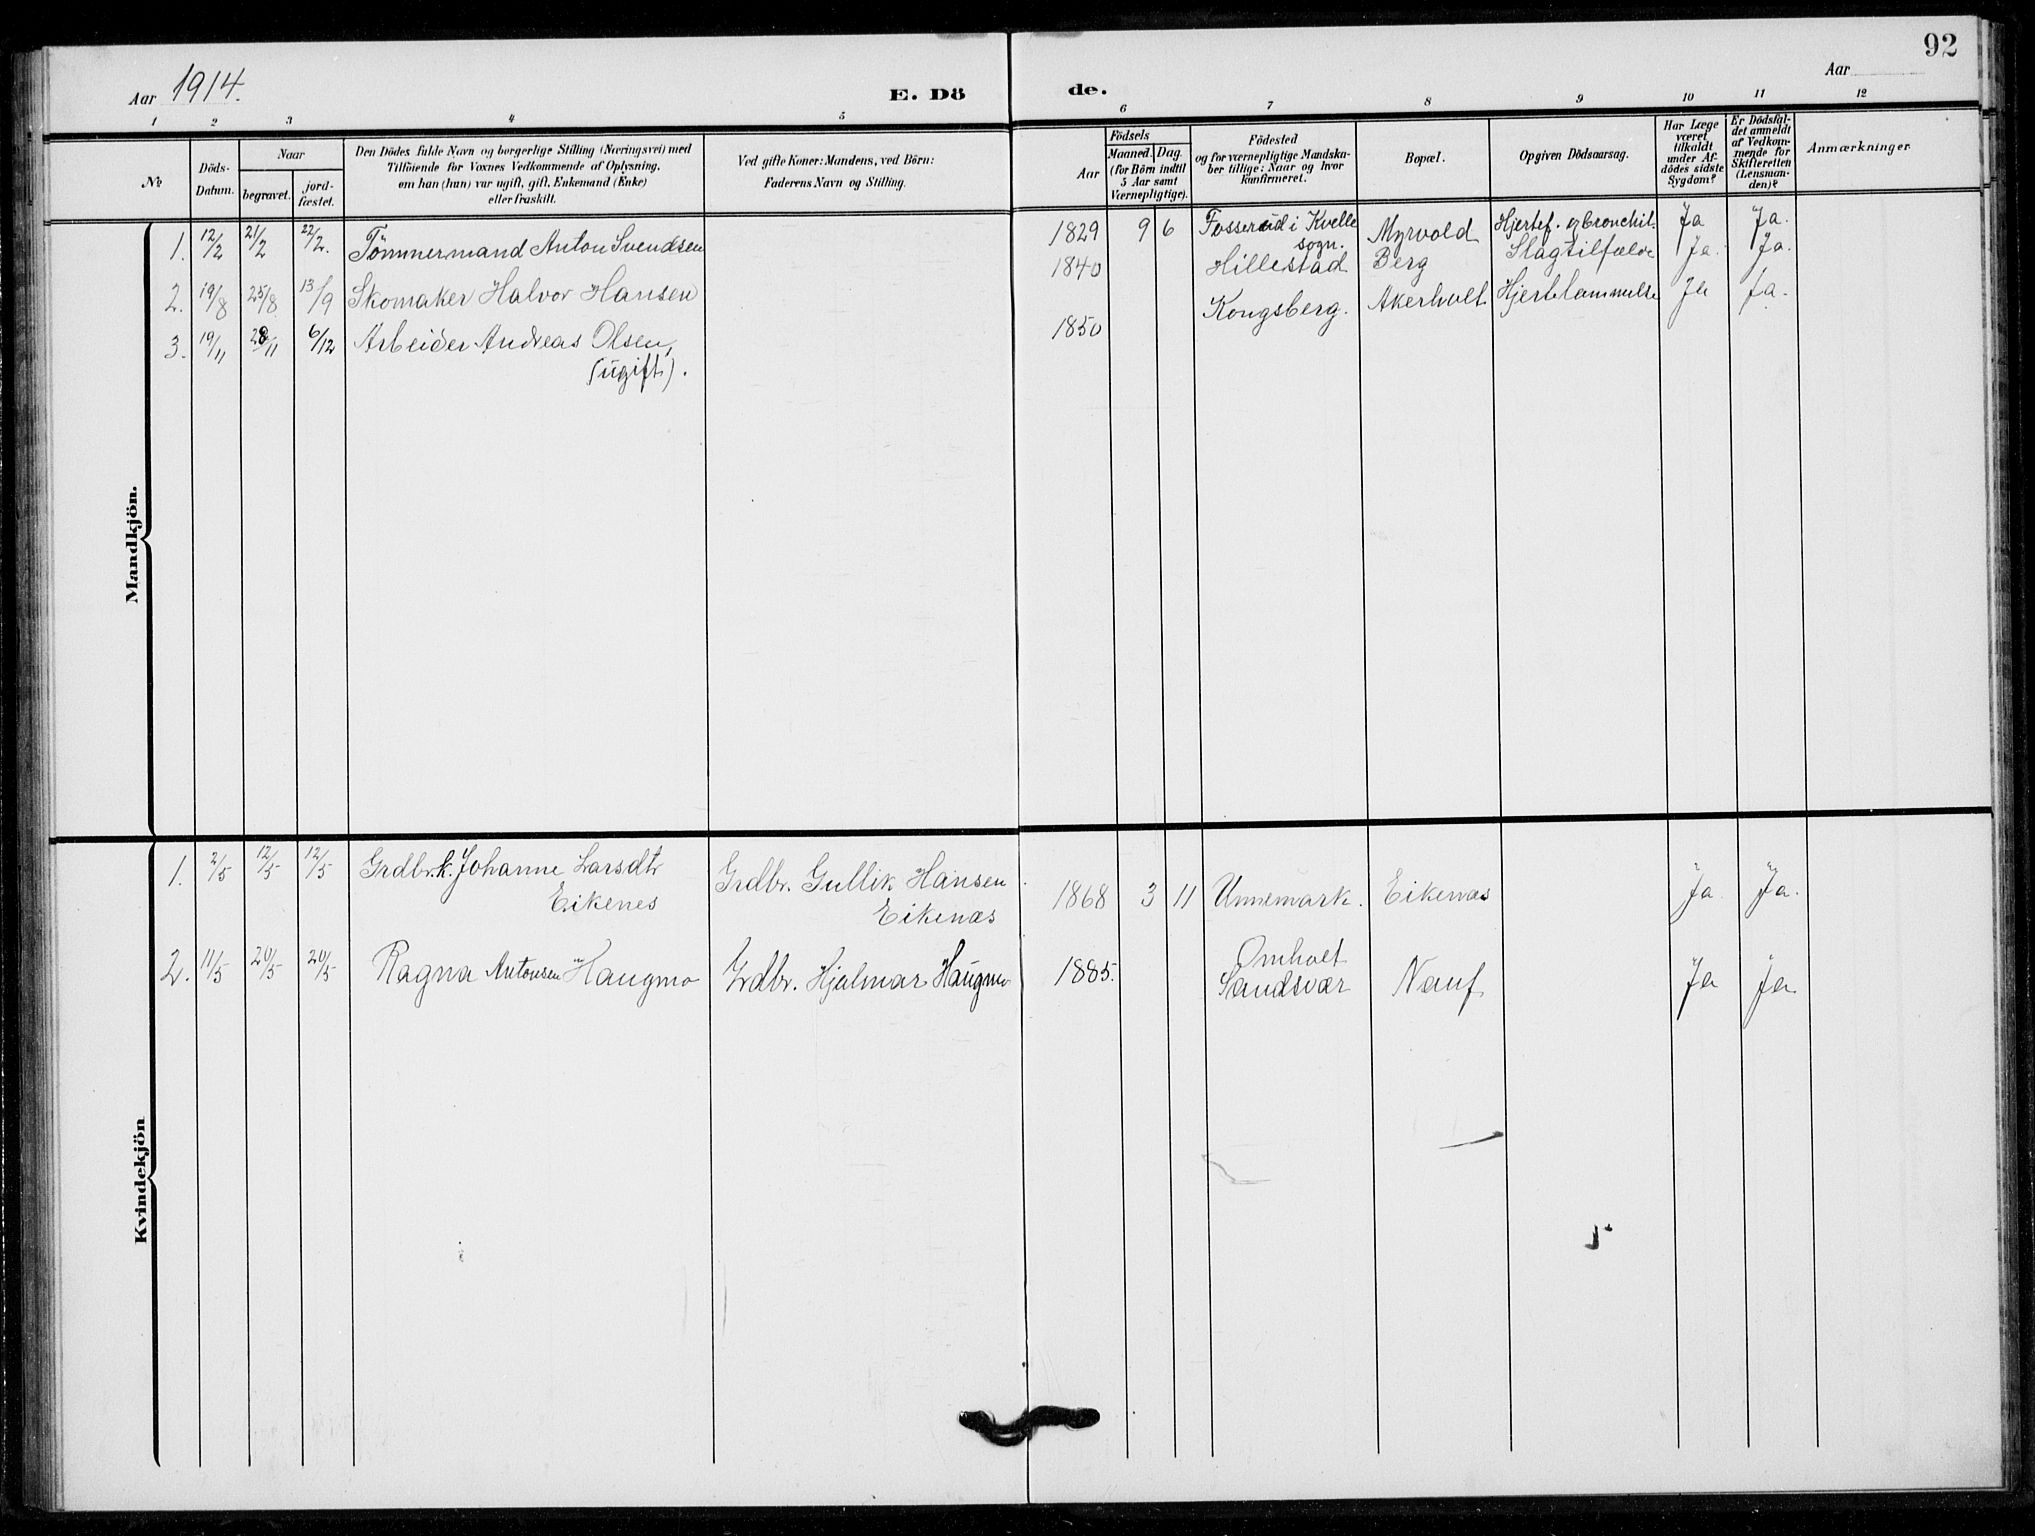 92
Aar 1914.
E. Dö
de.
Aar
1 2 3 4 5 6 7 8 9 10 11 12
No
Döds-
Datum.
Naar
begravet.
jord-
fæstet.
Den Dödes fulde Navn og borgerlige Stilling (Næringsvei) med
Tilföiende for Voxnes Vedkommende af Oplysning,
om han (hun) var ugift, gift, Enkemand (Enke)
eller fraskilt.
Ved gifte Koner: Mandens, ved Börn:
Faderens Navn og Stilling.
Födsels
Aar
Maaned. Dag.
(for Börn indtil
5 Aar samt
Værnepligtige).
Födested
og for værnepligtige Mandska-
ber tillige: Naar og hvor
konfirmeret.
Bopæl.
Opgiven Dödsaarsag.
Har Læge
været
tilkaldt
under Af-
dödes sidste
Sygdom?
Er Dödsfal-
det anmeldt
af Vedkom-
mende for
Skifteretten
(Lensman-
den)?
Anmærkninger
Mandkjön.
1. 12/2 21/2 22/2. Tömmermand Anton Svendsen 1829 9 6 Fosserud i Kvelle Myrvold Hjertef. og bronchit. Ja Ja.
sogn.
2. 19/8 25/8 13/9 Skomaker Halvor Hansen 1840 Hillestad Berg Slagtilfælde Ja. Ja.
3. 19/11 28/11 6/12 Arbeider Andreas Olsen, 1850 Kongsberg. Akerholt Hjertelammelse Ja Ja.
(ugift).
Kvindekjön
1. 2/5 12/5 12/5 Grdbr.k. Johanne Larsdtr Grdbr. Gullik Hansen 1868 3 11 Unnemark. Eikenæs Ja. Ja.
Eikenes Eikenæs
2. 11/5 20/5 20/5 Ragna Antonsen Haugmo Grdbr. Hjalmar Haugmo 1885. Omholt
Sandsvær Nauf Ja Ja